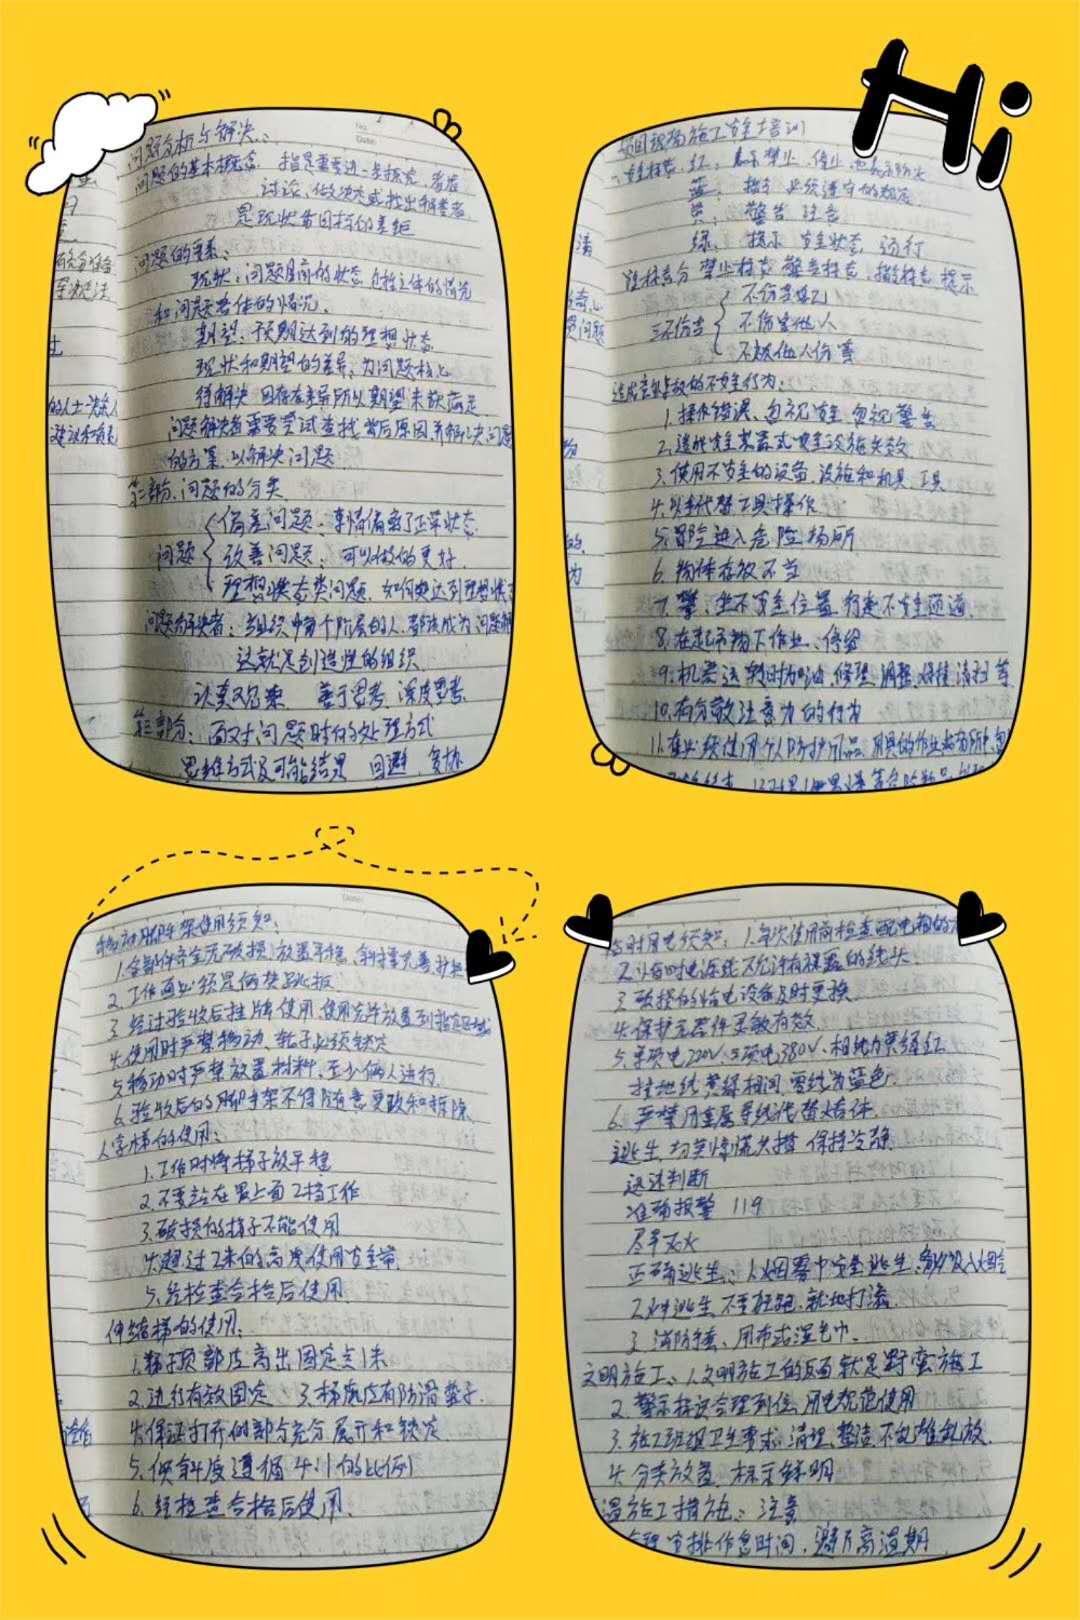 Hi
问题分析与解决:
问题的基本概念: 指是需要进一步探究、考虑
讨论、做决定或找出和答者
是现状与目标的差距
问题的要素:
现状:问题目前的状态,包括主体的情况
和问题客体的情况、
期望:预期达到的理想状态
现状和期望的差异:为问题核心
待解决 因存在差异所以期望未获满足
问题解决者需要尝试查找背后原因,并解决问题
的方案,以解决问题.
第二部分、问题的分类
问题
偏差问题:事情偏离了正常状态
改善问题:可以做的更好
理想状态类问题、如何要达到理想状
问题解决者:当组织中每个阶层的人,都能成为问题解
这就是创造性的组织
认真观察 善于思考 深度思考
第三部分:面对问题时的处理方式
思维方式及可能结果 回避 妥协
的人士-决策人
项目现场施工安全培训
安全标志:红: 表示禁止、停止 也表示防火
蓝: 指令 必须遵守的规定
黄: 警告 注意
绿: 提示 安全状态 通行
安全标志分 禁止标志 警告标志、指令标志 提示
三不伤害
不伤害自己
不伤害他人
不被他人伤害
造成安全事故的不安全行为:
1.操作错误、忽视安全 忽视警告
2.造成安全装置或安全设施失效
3.使用不安全的设备、设施和机具、工具
4.以手代替工具操作
5.冒险进入危险场所
6.物体存放不当
7.攀、坐不安全位置、行走不安全通道
8.在起吊物下作业、停留
9.机器运转时加油、修理、调整、焊接、清扫等
10.有分散注意力的行为
11.在必须使用个人防护用品、用具的作业或场所中,忽
移动脚手架使用须知:
1.全部件齐全无破损、放置平稳、斜撑完善、
2.工作面必须是俩块跳板
3.经过验收后挂牌使用,使用完毕放置到指定区域
4.使用时严禁移动、轮子必须锁定
5.移动时严禁放置材料,至少俩人进行
6.验收后的脚手架不得随意更改和拆除
人字梯的使用:
1.工作时将梯子放平稳
2.不要站在最上面2档工作
3.破损的梯子不能使用
4.超过2米的高度使用安全带
5.经检查合格后使用
伸缩梯的使用:
1.梯子顶部应高出固定点1米
2.进行有效固定 3.梯底应有防滑垫子.
4.保证打开的部分充分展开和锁定
5.倾斜度遵循4:1的比例
6.经检查合格后使用.
临时用电须知:1.每次使用前检查配电箱的
2.临时电源线不允许有裸露的线头
3.破损的临电设备及时更换
4.保护元器件灵敏有效
5.单项电220V、三项电380V、相线为黄绿红
接地线黄绿相间,零线为蓝色.
6.严禁用金属导线代替熔体.
逃生:切莫惊慌失措 保持冷静
迅速判断
准确报警 119
尽早灭火
正确逃生:1.烟雾中安全逃生,能少吸入烟尘
2.火中逃生 不要狂跑,就地打滚.
3.消防手套、用布或湿毛巾.
文明施工:1.文明施工的反面就是野蛮施工
2.警示标识合理到位、用电规范使用
3.施工班组卫生要求:清理、整洁、不乱堆乱放
4.分类放置、标示鲜明
高温施工措施:注意
合理安排作息时间,避开高温期